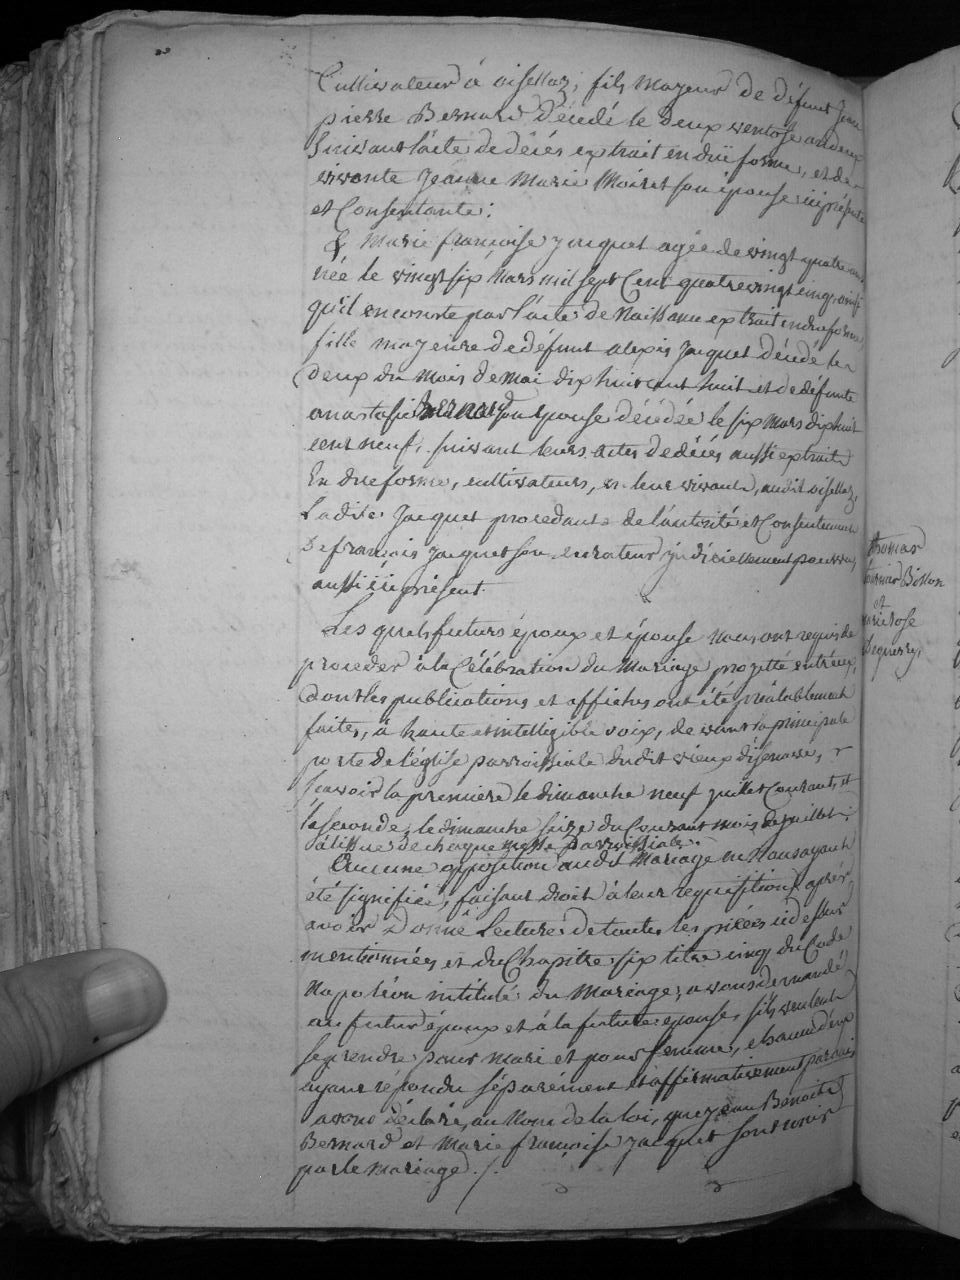 Cultivateur à oisellaz, fils Mayeur de défunt Jean
pierre Bernard décédé le Deux ventose an deux
suivant l'acte de décés extrait en düe forme, et de
vivante Jeanne Marie Moiret son épouse ici présente
et Consentante:
& Marie françoise jacquet agée de vingt quatre ans
née le vingt six Mars mil sept Cent quatre vingt cinq, ainsi
qu'il en conste par l'acte de Naissance extrait en due forme,
fille mayeure de défunt alexis Jacquet décédé le
deux du Mois de Mai dix huit cent huit et de défunte
anastasie Bernard son épouse décédée le six Mars dix huit
cent neuf, suivant leurs actes de décés aussi extraits
En due forme, cultivateurs, en leur vivant, audit oisellaz,
Ladite Jacquet procedante de l'autorité et Consentement
De françois jacquet son curateur judiciellement pourvu,
aussi ici présent.
Les quels futurs époux et épouse Nous ont requis de
proceder à la Célébration du Mariage projetté entr'eux,
dont les publications et affiches ont été préalablement
faites, à haute et intelligible voix, devant la principale
porte de l'église parroissiale dudit vieux d'isenave,
sçavoir la premiere le dimanche neuf juillet Courant, et
la seconde, le dimanche seize du Courant mois de juillet,
à l'issue de chaque messe parroissiale.
Aucune opposition audit Mariage ne Nous ayant
été signifiée, faisant droit à leur requisition, après
avoir Donné Lecture de toutes les pièces ci dessus
mentionnées et du Chapitre six titre cinq du Code
Napoléon intitulé du Mariage, avons demandé
au futur époux et à la future epouse, s'ils veulent
se prendre pour mari et pour femme, chacun d'eux
ayant répondu séparément et affirmativement
avons déclaré, au Nom de la loi, que jean Benoit
Bernard et Marie françoise jacquet sont unis
par le mariage ./.
thomas
Billon
et
marie rose